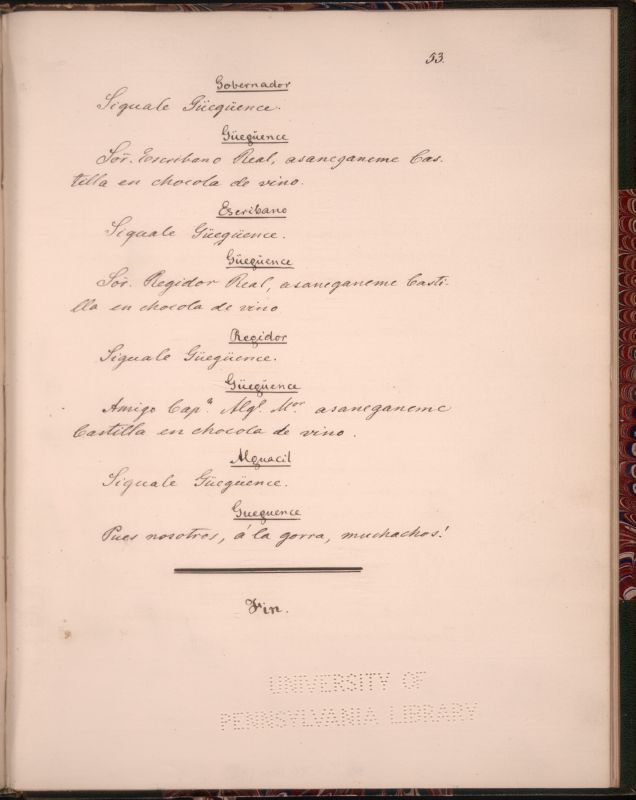 53.
Gobernador
Siquale Güegüence.
Güegüence
Sor. Escribano Real, asaneganeme Cas-
tilla en chocola de vino.
Escribano
Siquale Güegüence.
Güegüence
Sor. Regidor Real, asaneganeme Casti-
lla en chocola de vino
Regidor
Siquale Güegüence.
Güegüence
Amigo Capn. Algl. Mor. asaneganeme
Castilla en chocola de vino.
Alguacil
Siquale Güegüence.
Gueguence
Pues nosotros, á la gorra, muchachos!
Fin.
UNIVERSITY OF
PENNSYLVANIA LIBRARY